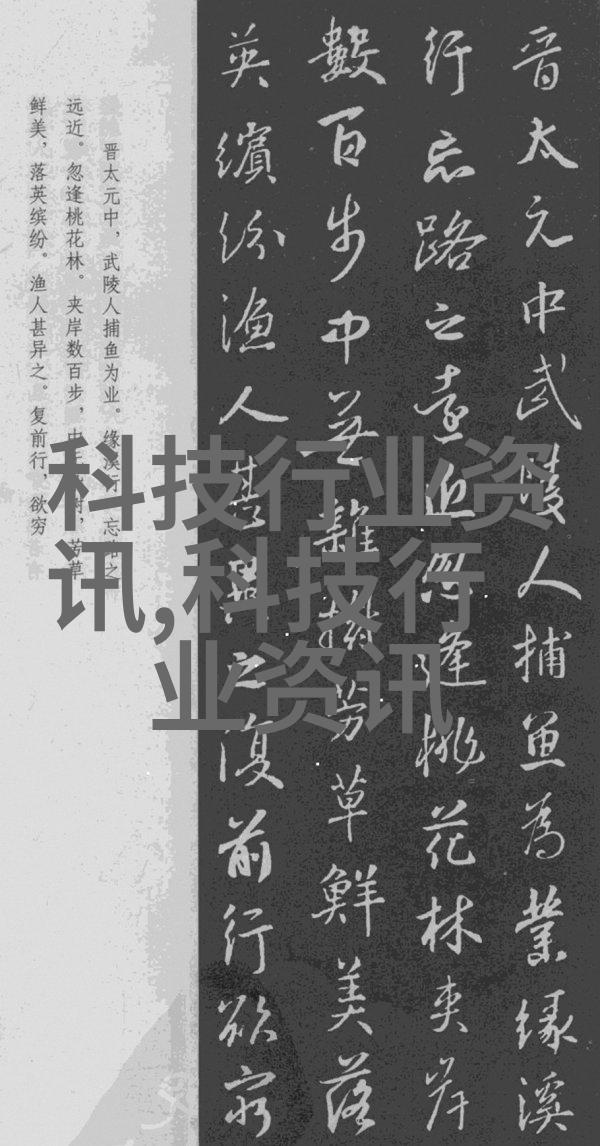 晋太元中武陵人捕鱼为業缘溪
行忘路之遠近忽逢桃花林夹岸
數百步中無雜樹芳草鮮美落
英繽纷渔人甚異之復前行欲穷
晋太元中，武陵人捕鱼为业。缘溪行，忘路之
远近。忽逢桃花林。夹岸数百步，中无杂树，芳草
鲜美，落英缤纷。渔人甚异之。复前行，欲穷
科技行业资
讯,科技行
业资讯